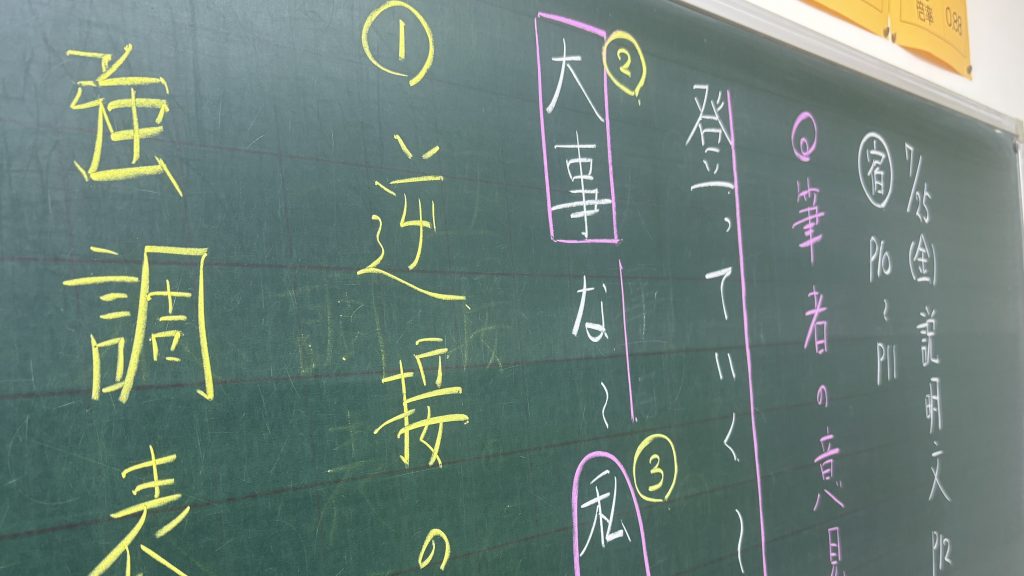 7/25(金)説明文 P12
宿 P10〜P11
Q筆者の意見
登っていく〜
②
大事な〜
③
私
①逆接の
強調表
0.88